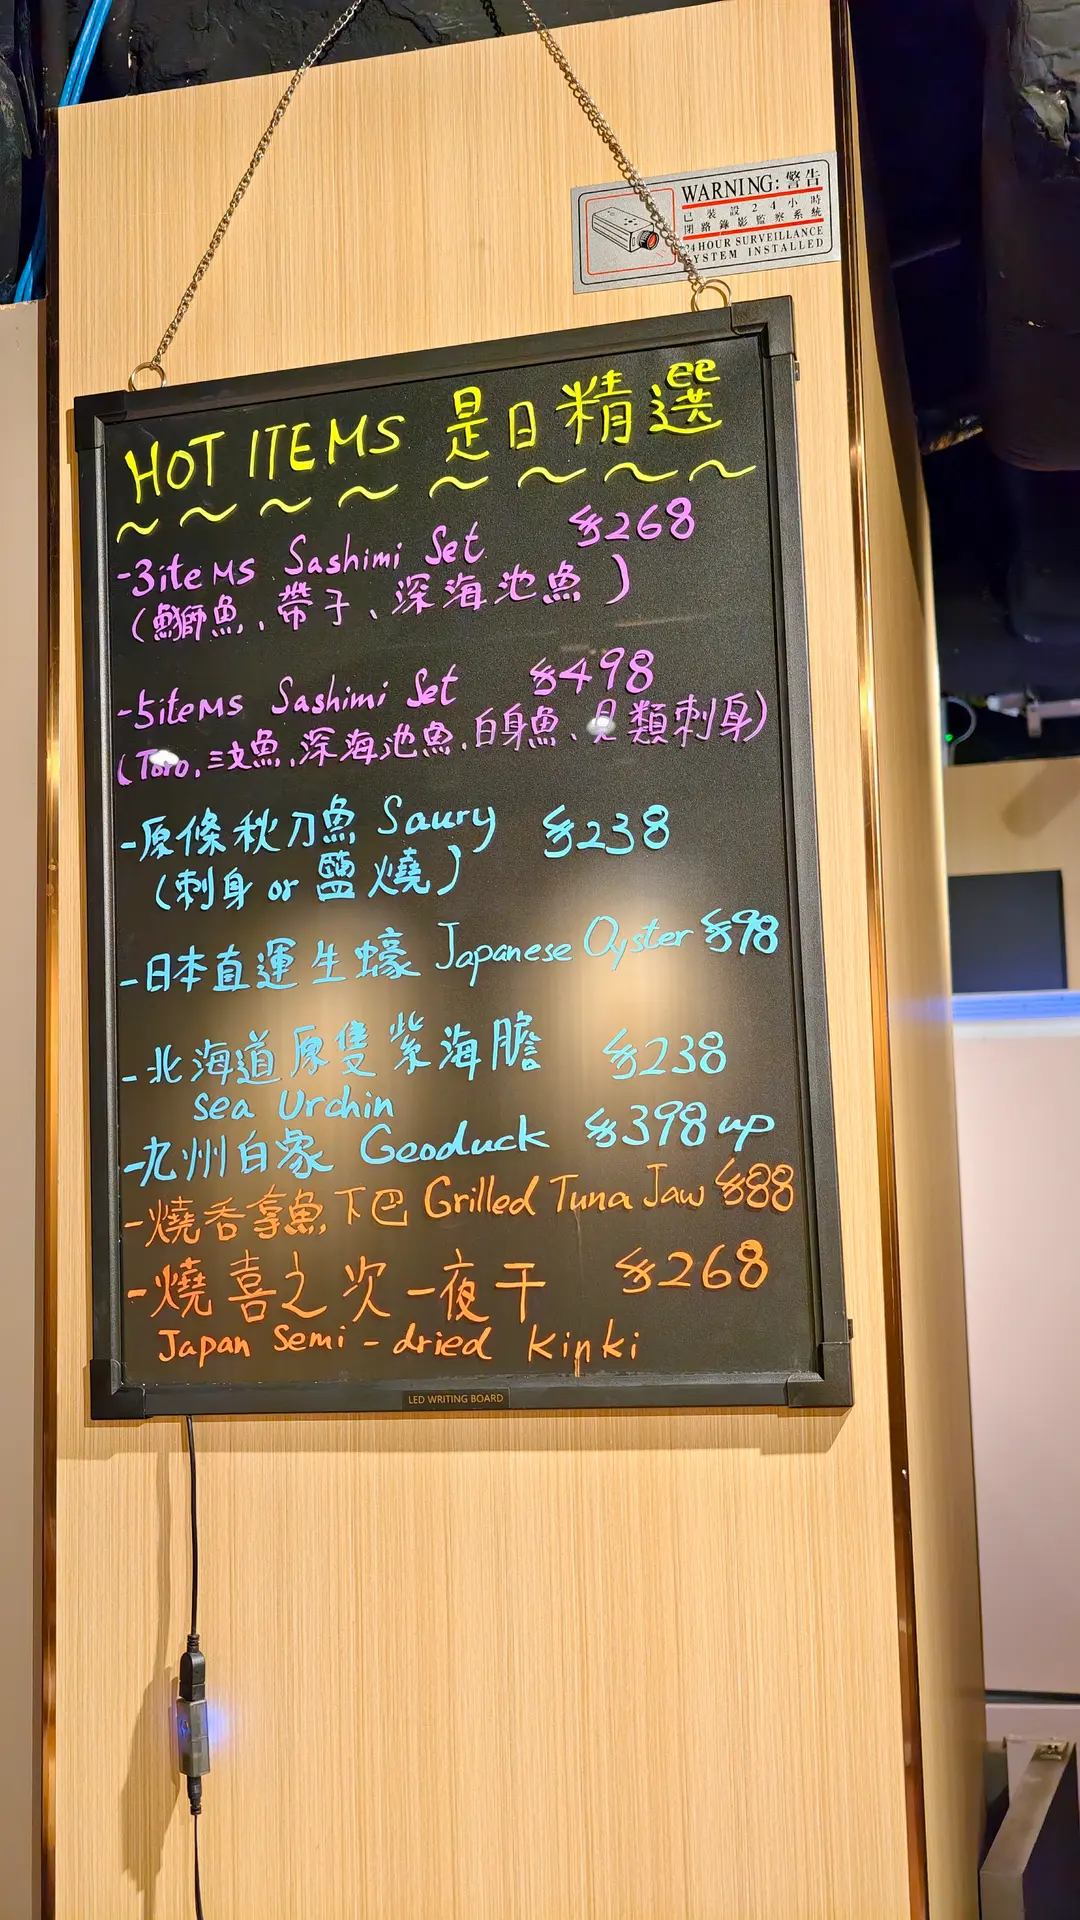 WARNING: 警告
已裝設24小時
閉路錄影監察系統
24HOUR SURVEILLANCE
SYSTEM INSTALLED
HOT ITEMS 是日精選
~ ~ ~ ~ ~ ~ ~
-3iteMS Sashimi Set $268
(鰤魚、帶子、深海池魚)
-5iteMS Sashimi Set $498
(Toro,三文魚,深海池魚,白身魚、貝類刺身)
-原條秋刀魚 Saury $238
(刺身 or 鹽燒)
-日本直運生蠔 Japanese Oyster $98
-北海道原隻紫海膽 $238
Sea Urchin
-九州白象 Geoduck $398 up
-燒吞拿魚下巴 Grilled Tuna Jaw $88
-燒喜之次一夜干 $268
Japan Semi-dried Kinki
LED WRITING BOARD